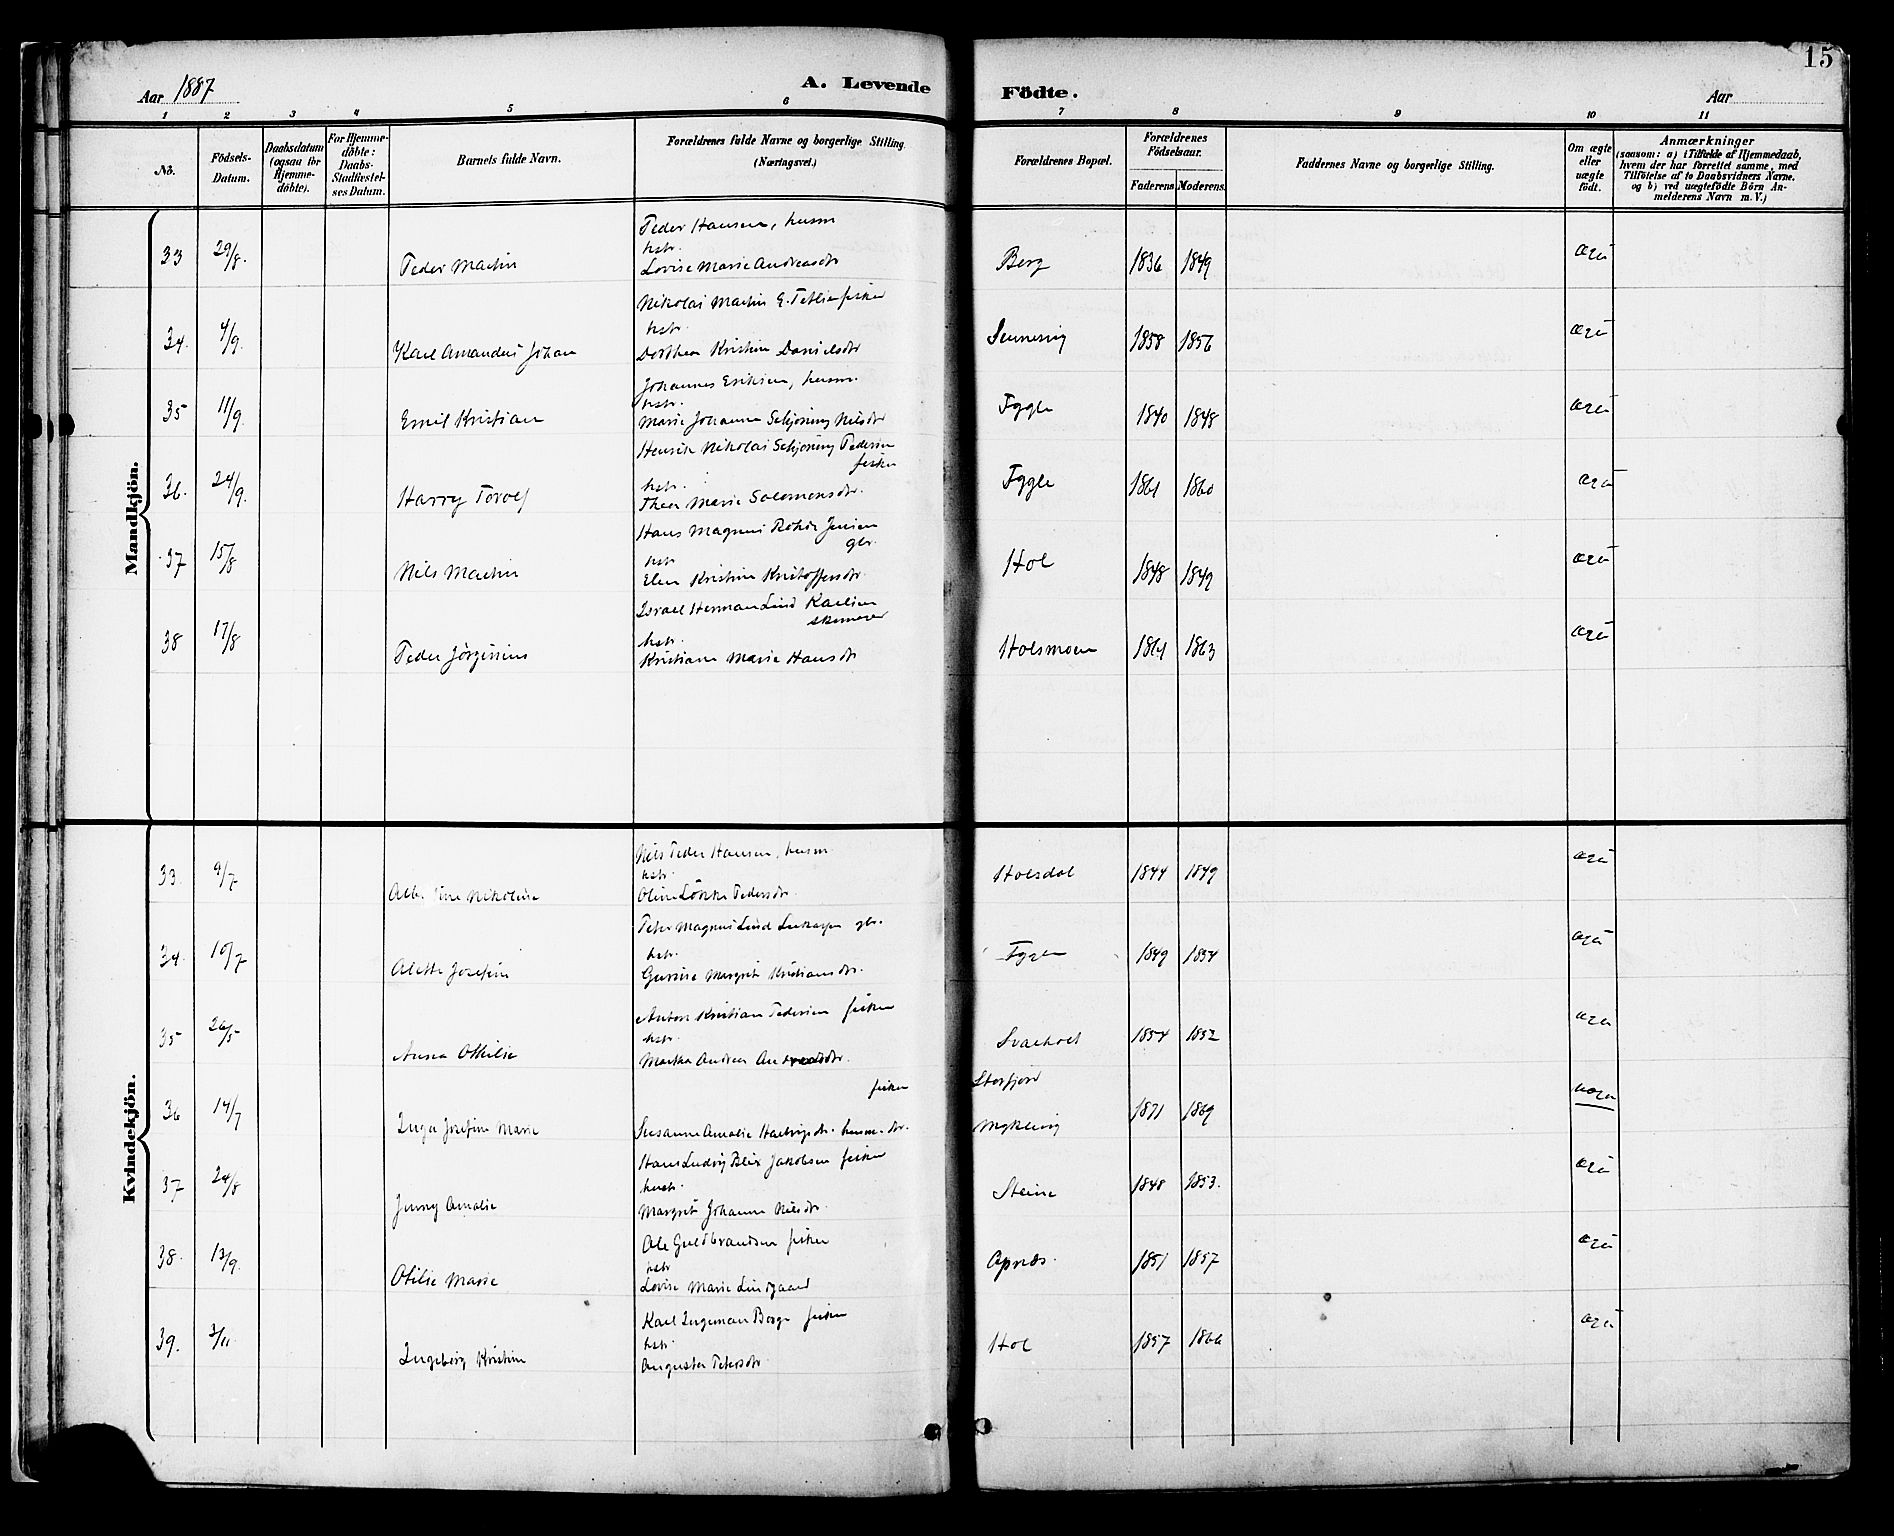 15
Aar 1887
A. Levende Födte.
Aar
1 2 3 4 5 6 7 8 9 10 11
No.
Födsels-Datum.
Daabsdatum (ogsaa for Hjemmedöbte).
For Hjemmedöbte: Daabs-Stadfæstelses Datum.
Barnets fulde Navn.
Forældrenes fulde Navne og borgerlige Stilling. (Næringsvei.)
Forældrenes Bopæl.
Forældrenes Födselsaar.
Faderens. Moderens.
Faddernes Navne og borgerlige Stilling.
Om ægte eller uægte födt.
Anmærkninger
(saasom: a) i Tilfælde af Hjemmedaab, hvem der har forrettet samme, med Tilföielse af to Daabsvidners Navne. og b) ved uægtefödte Börn Anmelderens Navn m. V.)
Mandkjön.
Peder Hansen, husm
33 29/8. Peder Martin hstr. Berg 1836 1849 ægte
Lovise Marie Andreasdtr
Nikolai Martin E. fisker
34. 4/9. Karl Amandus Johan hstr. 1858 1856 ægte
Dorthea Kristine Danielsdtr
Johannes Eriksen, husm.
35 11/9. Emil Kristian hstr. Fygle 1840 1848 ægte
Marie Johanna Schjøning Nilsdtr
Henrik Nikolai Schjøning Pedersen
fisker
36. 24/9. Harry Torolf hstr. Fygle 1861 1860 ægte
Thea Marie Salomonsdtr.
Hans Magnus Jensen
gbr.
37 15/8 Nils Martin hstr Hol 1848 1849 ægte
Elen Kristine Kristoffersdtr.
Israel Herman Lind Karlsen
skomager
38 17/8 Peder Jörginius hstr. Holsmoen 1861 1863 ægte
Kristiane Marie Hansdtr
Kvindekjön.
Nils Peder Hansen, husm.
33. 9/7 Nikoline hstr. Holsdal 1844 1849 ægte
Oline Pedersdtr.
Peter Magnus Lind gbr.
34. 10/7 Alette Josefine hstr. Fygle 1849 1854 ægte
Margrit Kristiansdtr.
Anton Kristian Pedersen fisker
35 26/5 Anna Othilie hstr. Svarholt 1854 1852 ægte
Martha Andrea
fisker Storfjord
36 14/7 Inga Josefine Marie Myklevig 1871 1869 uægte
Susanne Amalie Hartvigsdtr. husm.dtr.
Hans Ludvig Blix Jakobsen fisker
37 24/8 Jenny Amalie hustr. Steine 1848 1853. ægte
Margrit Johanna Nilsdtr.
Ole Guldbrandsen fisker
38. 13/9. Otilie Marie hstr 1851 1857 ægte
Lovise Marie Lindgaard
Karl Ingeman Borge fisker
39. 3/11 Ingeborg Kristine hstr. Hol 1857 1866 ægte
Augusta Petersdtr